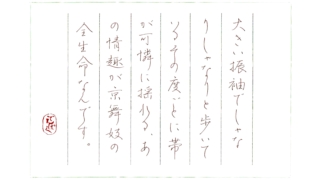 大きい振袖でしゃな
りしゃなりと歩いて
いるその度いとに帯
が可憐に揺れる、あ
の情趣が京舞妓の
全生命なんです。